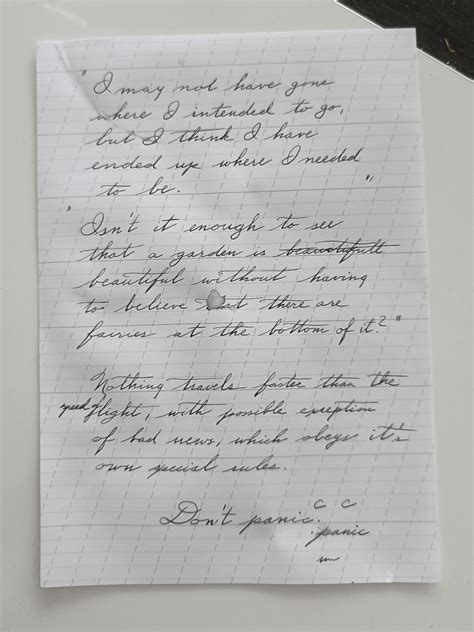 "I may not have gone
where I intended to go,
but I think I have
ended up where I needed
to be. "
"Isn't it enough to see
that a garden is beautifull
beautiful without having
to believe that there are
fairies at the bottom of it?"
Nothing travels faster than the
speed of light, with possible exception
of bad news, which obeys it's
own special rules.
Don't panic. c c
panic